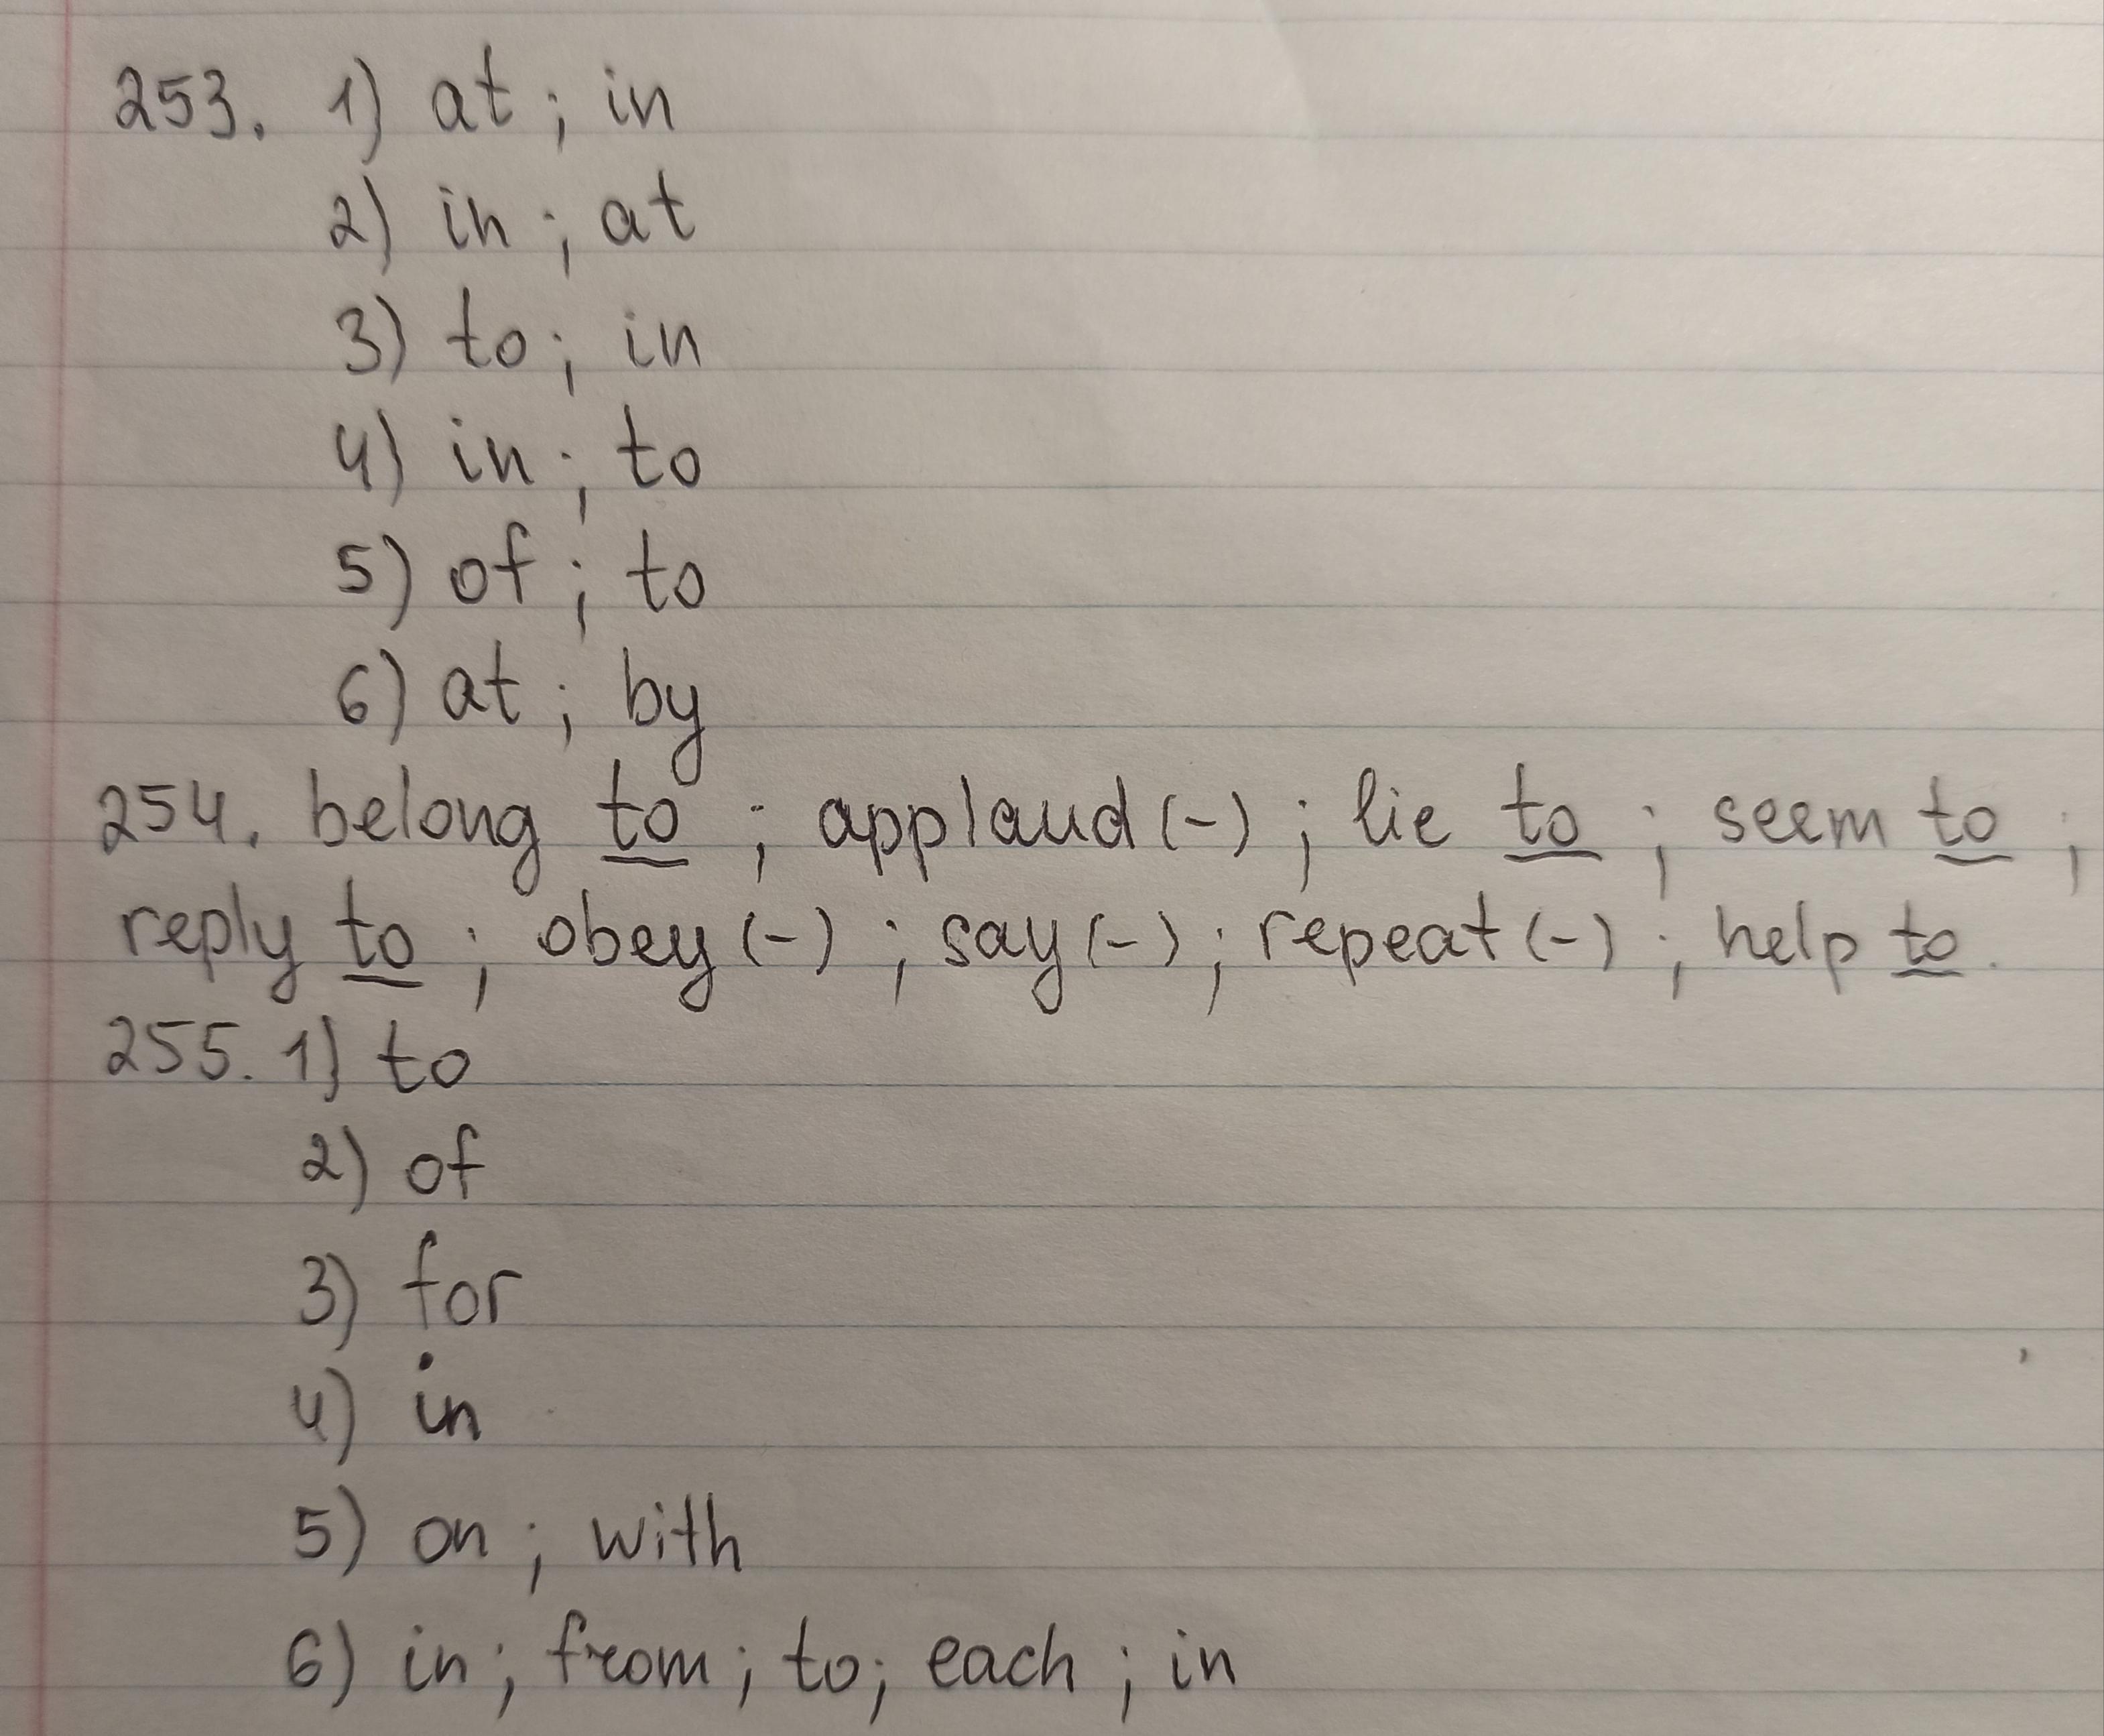 253. 1) at; in
2) in; at
3) to; in
4) in; to
5) of; to
6) at; by
254. belong to; applaud (-); lie to; seem to;
reply to; obey (-); say (-); repeat (-); help to.
255. 1) to
2) of
3) for
4) in
5) on; with
6) in; from; to; each; in